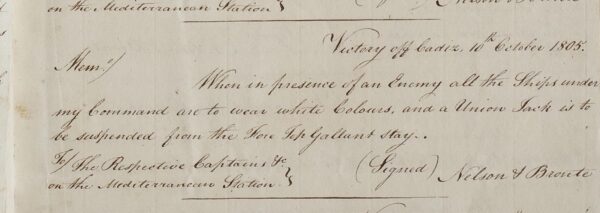 on the Mediterranean Station }
Victory off Cadiz, 10th October 1805.
Mem:/
When in presence of an Enemy all the Ships under
my Command are to wear white Colours, and a Union Jack is to
be suspended from the Fore Top Gallant stay..
To/ The Respective Captains &c
on the Mediterranean Station. }
(Signed) Nelson & Bronte